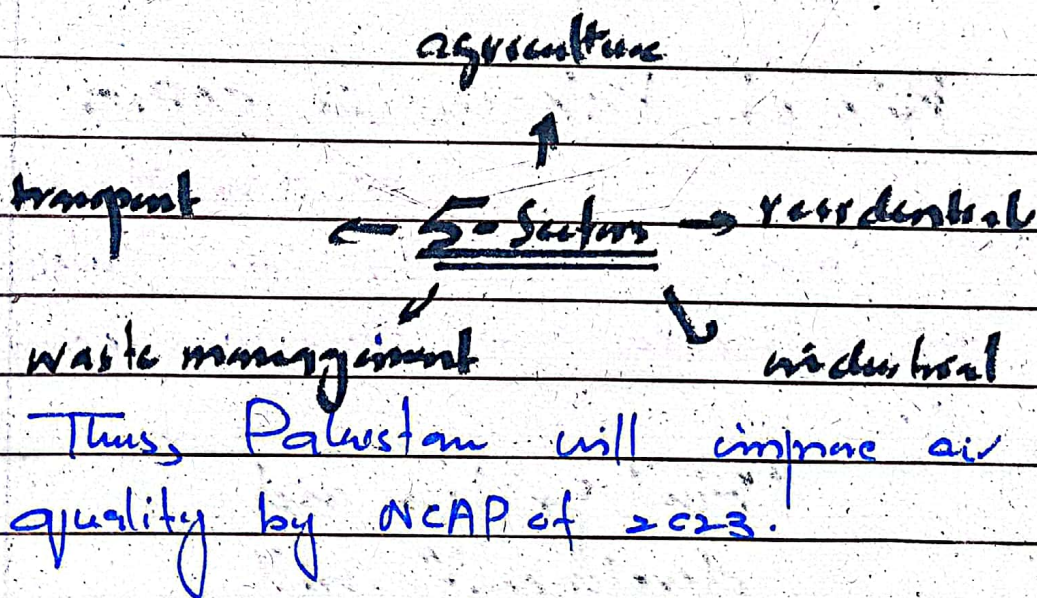 agriculture
transport ← 5-Sectors → residential
waste management industrial
Thus, Pakistan will improve air
quality by NCAP of 2023.